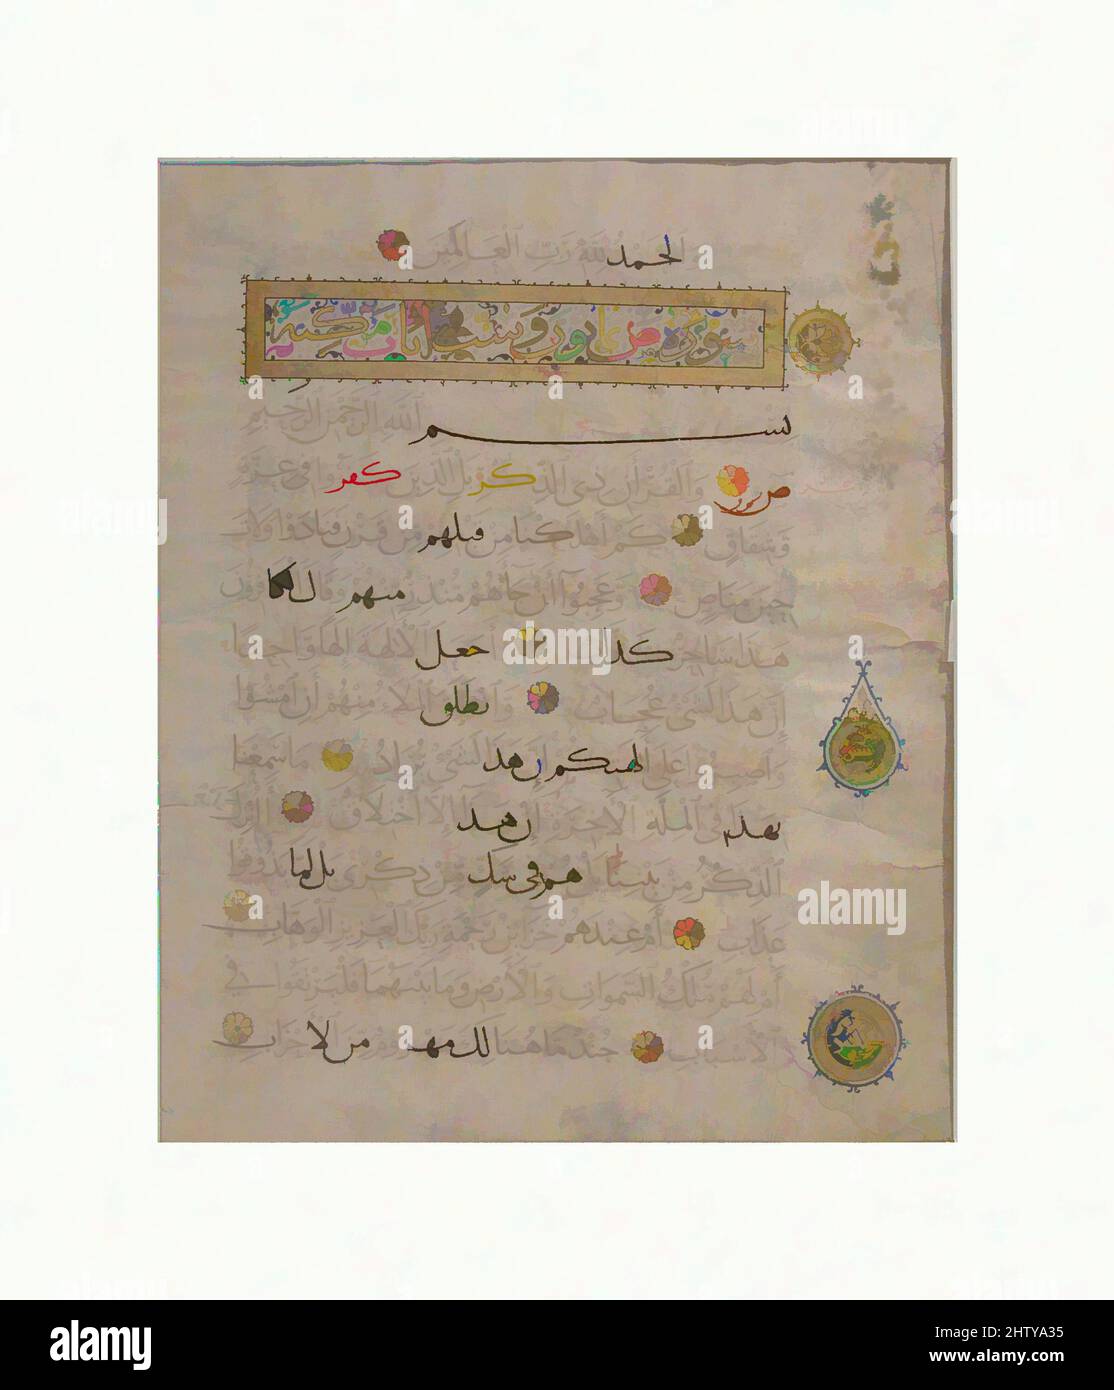 الحمد لله رب العالمين
سورة ص ثمانون وست آيات مكية
بسم الله الرحمن الرحيم
ص والقرآن ذي الذكر بل الذين كفروا في عزة
وشقاق كم أهلكنا من قبلهم من قرن فنادوا ولات
حين مناص وعجبوا أن جاءهم منذر منهم وقال الكافرون
هذا ساحر كذاب أجعل الآلهة إلها واحدا
إن هذا لشيء عجاب وانطلق الملأ منهم أن امشوا
واصبروا على آلهتكم إن هذا لشيء يراد ما سمعنا
بهذا في الملة الآخرة إن هذا إلا اختلاق أأنزل عليه
الذكر من بيننا بل هم في شك من ذكري بل لما يذوقوا
عذاب أم عندهم خزائن رحمة ربك العزيز الوهاب
أم لهم ملك السموات والأرض وما بينهما فليرتقوا في
الأسباب جند ما هنالك مهزوم من الأحزاب
alamy
Image ID: 2HTYA35
www.alamy.com